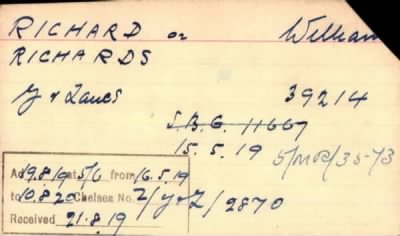 RICHARD or William
RICHARDS
Y & Lancs 39214
S.B.G. 11667
15.5.19 5/MR/35-73
Ad 19.8.19 at 5/6 from 16.5.19
to 10.8.20 Chelsea No. 2/Y&L/2870
Received 21.8.19